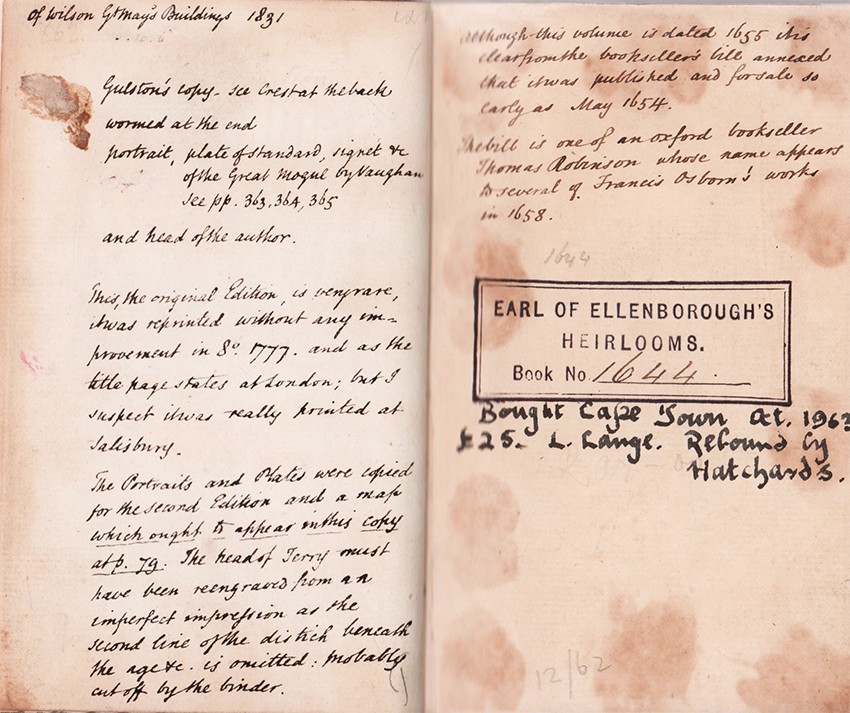 of Wilson Gt May's Buildings 1831
Gulston's copy - see Crest at the back
wormed at the end
portrait, plate of standard, signet &c
of the Great Mogul by Vaughan
see pp. 363, 364, 365
and head of the author.
This, the original Edition, is very rare,
it was reprinted without any im=
provement in 8o. 1777. and as the
title page states at London; but I
suspect it was really printed at
Salisbury.
The Portraits and Plates were copied
for the second Edition and a map
which ought to appear in this copy
at p. 79. The head of Terry must
have been reengraved from an
imperfect impression as the
second line of the distich beneath
the age &c. is omitted: probably
cut off by the binder.
Although this volume is dated 1655 it is
clear from the bookseller's bill annexed
that it was published and for sale so
early as May 1654.
The bill is one of an oxford bookseller
Thomas Robinson whose name appears
to several of Francis Osborn's works
in 1658.
1644
EARL OF ELLENBOROUGH'S
HEIRLOOMS.
Book No. 1644.
Bought Cape Town Oct. 1963
£25- L. Lange. Rebound by
Hatchards.
12/62